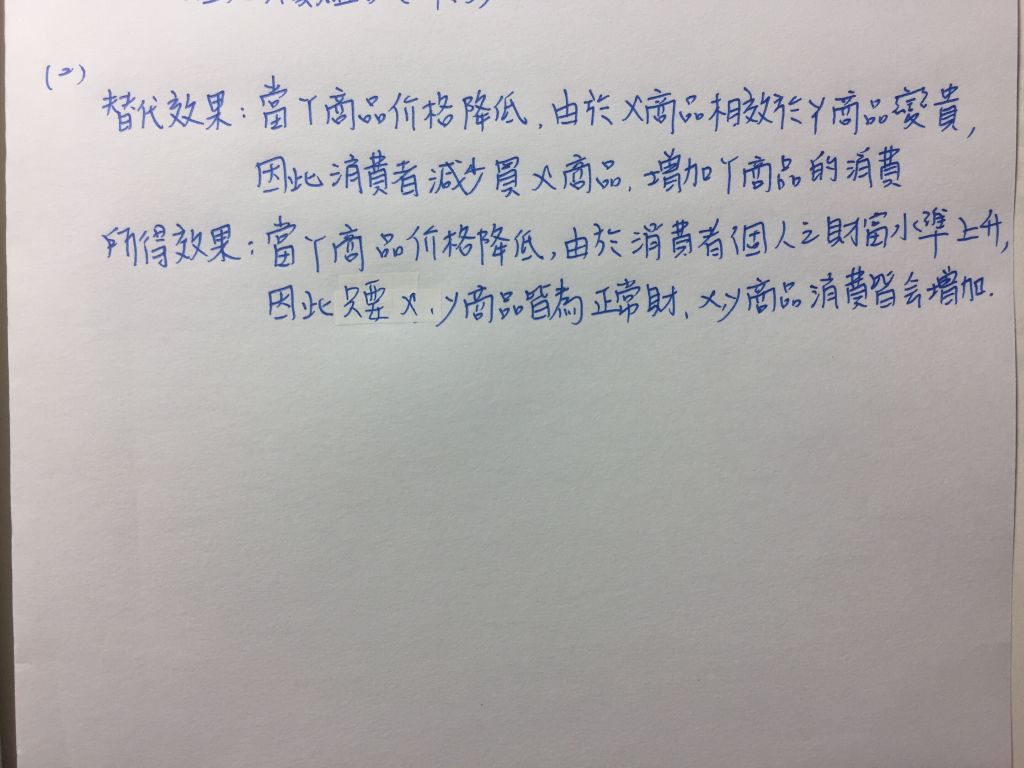 (二)
替代效果：當Y商品价格降低，由於X商品相效於Y商品變貴，
因此消費者減少買X商品，增加Y商品的消費
所得效果：當Y商品价格降低，由於消費者個人之財富水準上升，
因此只要X、y商品皆為正常財，x,y商品消費皆会增加.